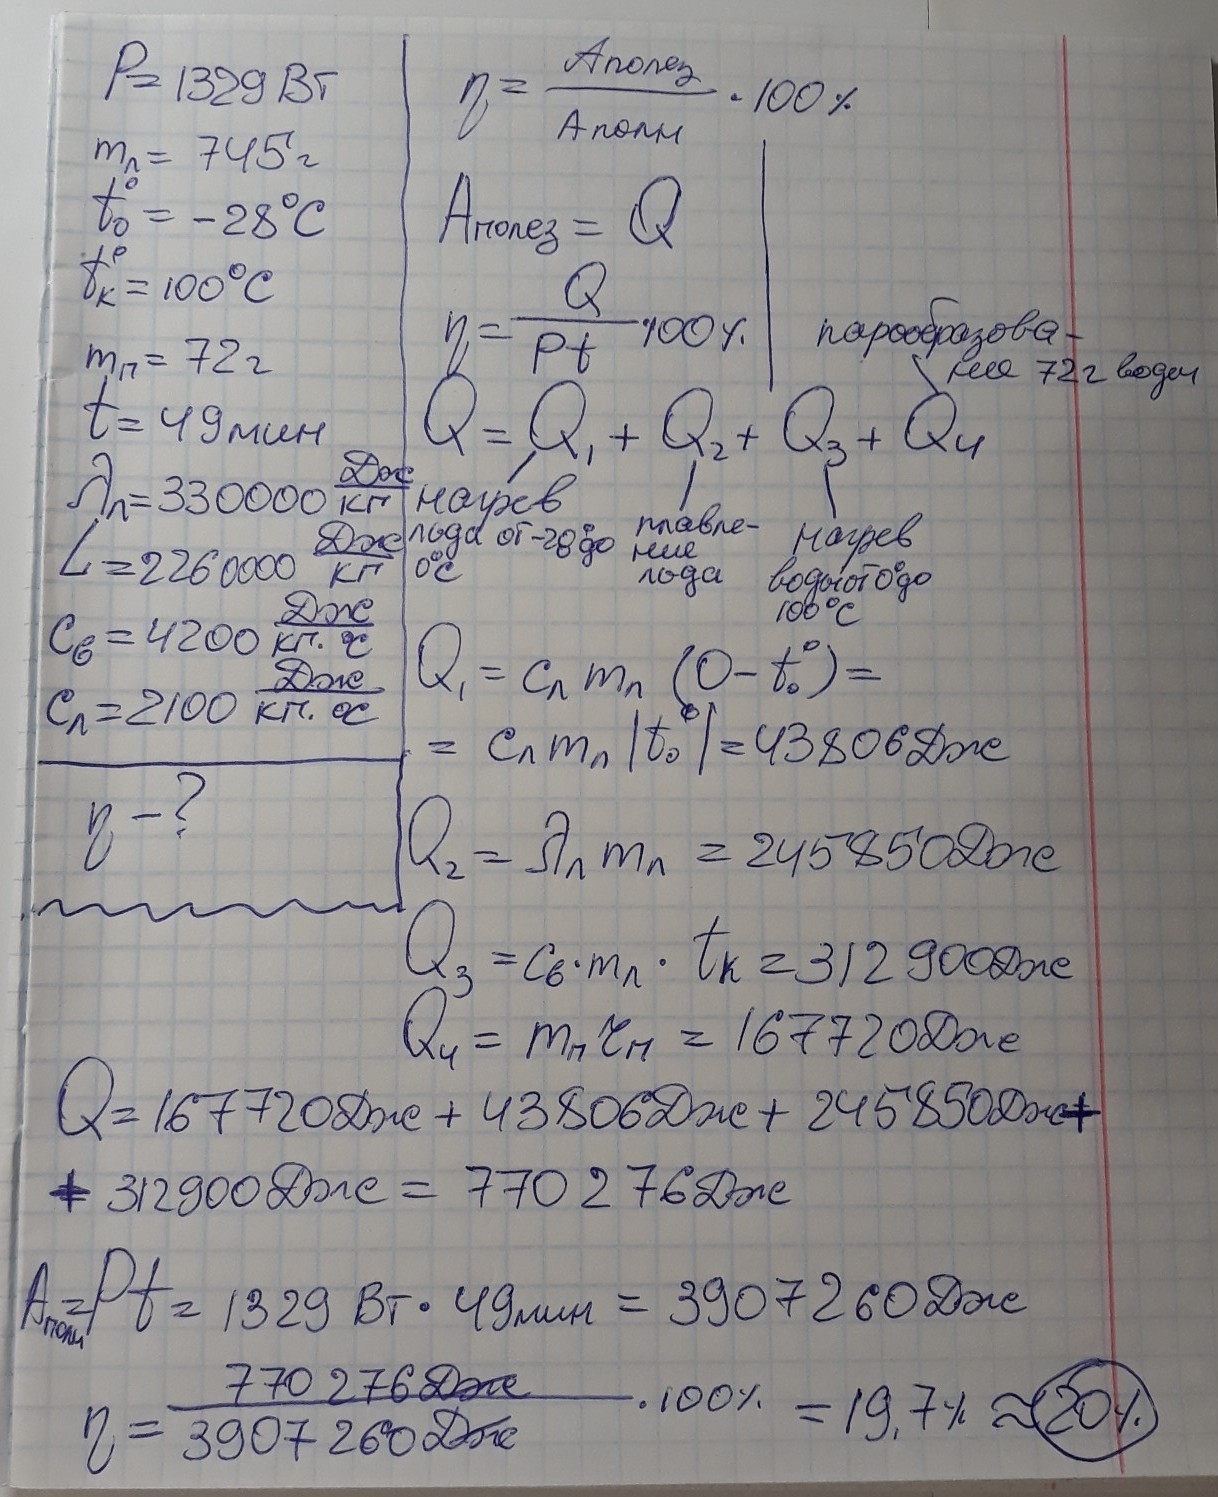 P = 1329 Вт
mл = 745 г
t°₀ = -28°C
t°к = 100°C
mп = 72 г
t = 49 мин
λл = 330000 Дж/кг
L = 2260000 Дж/кг
cв = 4200 Дж/кг·°C
cл = 2100 Дж/кг·°C
η - ?
η = Aполез/Aполн · 100%
Aполез = Q
η = Q/Pt · 100%
парообразова-
ние 72 г воды
Q = Q₁ + Q₂ + Q₃ + Q₄
нагрев
льда от -28° до
0°C
плавле-
ние
льда
нагрев
воды от 0° до
100°C
Q₁ = cл mл (0 - t°₀) =
= cл mл |t°₀| = 43806 Дж
Q₂ = λл mл = 245850 Дж
Q₃ = cв · mл · tк = 312900 Дж
Q₄ = mп rп = 167720 Дж
Q = 167720 Дж + 43806 Дж + 245850 Дж +
+ 312900 Дж = 770276 Дж
Aполн = Pt = 1329 Вт · 49 мин = 3907260 Дж
η = 770276 Дж/3907260 Дж · 100% = 19,7% ≈ 20%